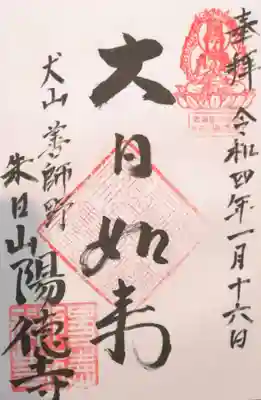 奉拝 令和四年一月十六日
大日如来
犬山 善師野
朱日山 陽徳寺